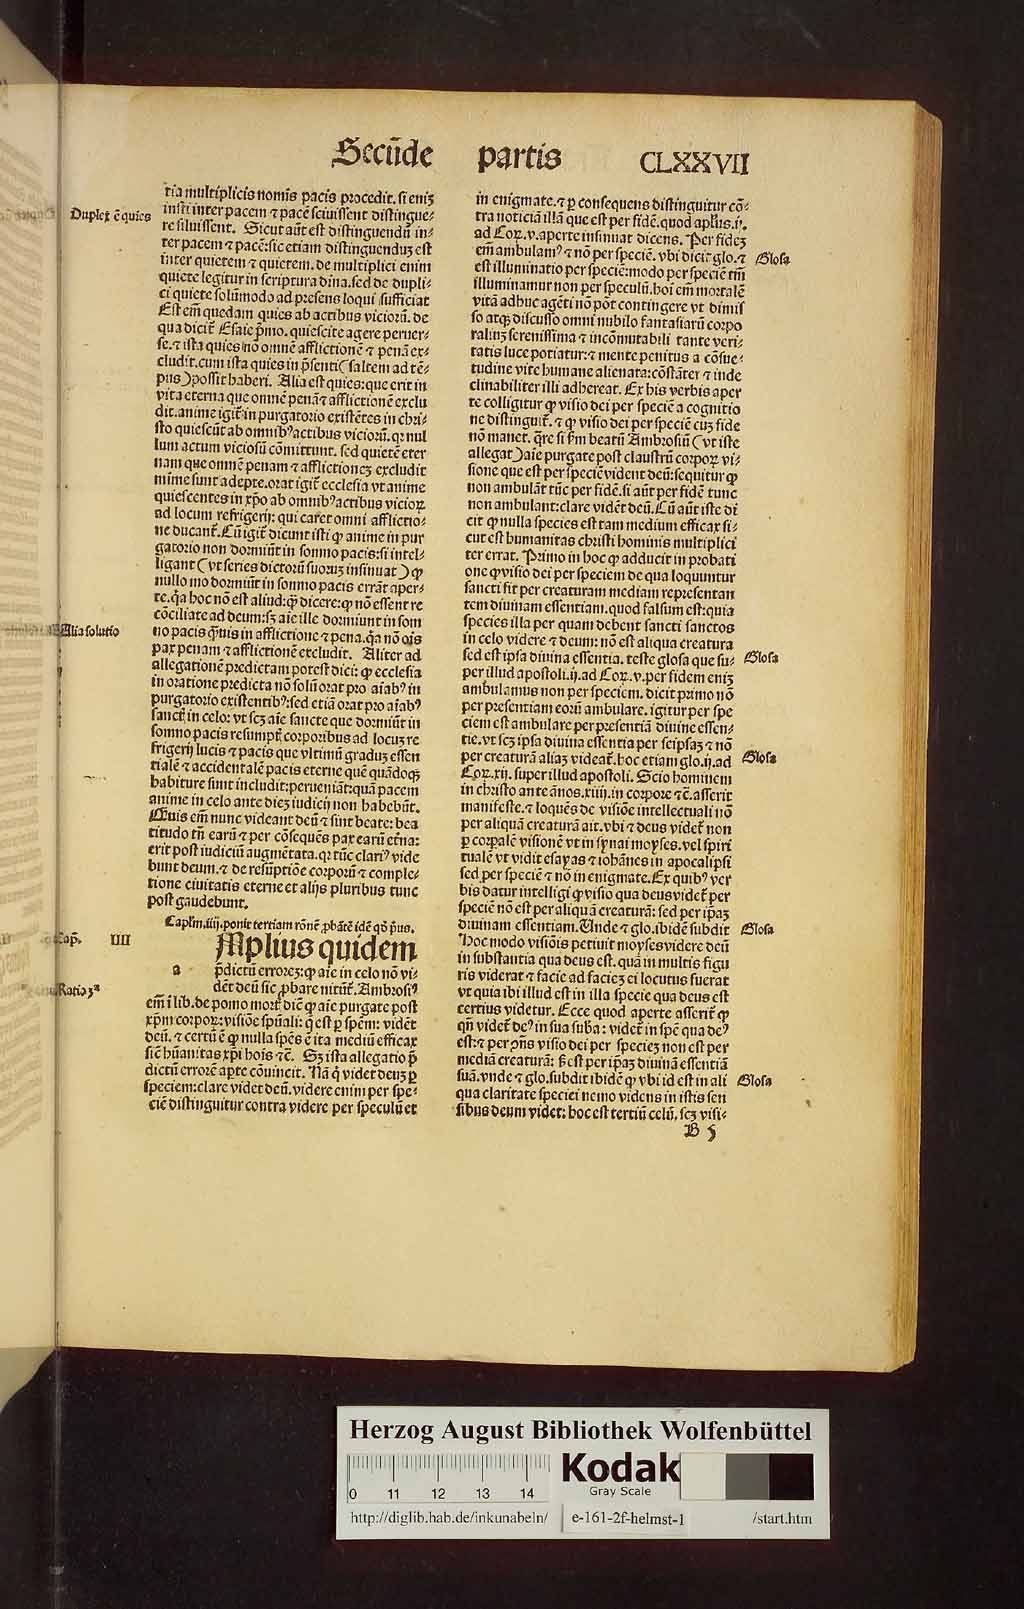 Secūde partis CLXXVII
tia multiplicis nomīs pacis procedit. si enim
Duplex ē quies
insti inter pacem ⁊ pacē sciuissent distingue-
re siluissent. Sicut aūt est distinguendū in-
ter pacem ⁊ pacē: sic etiam distinguendum est
inter quietem ⁊ quietem. de multiplici enim
quiete legitur in scriptura diīna. sed de dupli-
ci quiete solūmodo ad presens loqui sufficiat
Est em̄ quedam quies ab actibus viciorū. de
qua dicit᷑ Esaie p̄mo. quiescite agere peruer-
se. ⁊ ista quies nō omnē afflictionē ⁊ penā ex-
cludit. cum ista quies in p̄senti (saltem ad tē-
pus) possit haberi. Alia est quies: que erit in
vita eterna que omnē penā ⁊ afflictionē exclu
dit. anime igit᷑ in purgatorio existētes in chri-
sto quiescūt ab omnibꝰ actibus viciorū. qꝛ nul
lum actum viciosū cōmittunt. sed quietē eter
nam que omnē penam ⁊ afflictionez excludit
mīme sunt adepte. orat igit᷑ ecclesia vt anime
quiescentes in xp̄o ab omnibꝰ actibus vicioꝝ
ad locum refrigerij: qui caret omni afflictio-
ne ducant᷑. Cū igit᷑ dicunt isti ꝙ anime in pur
gatorio non dormiūt in somno pacis: si intel-
ligant (vt series dictorū suorum insinuat) ꝙ
nullo mō dormiūt in somno pacis errāt aper-
te. q̄a hoc nō est aliud: q̄ dicere: ꝙ nō essent re
cōciliate ad deum: sꝫ aīe ille dormiunt in som
Alia solutio
no pacis q̄uis in afflictione ⁊ pena. q̄a nō oīs
pax penam ⁊ afflictionē excludit. Aliter ad
allegationē predictam potest dici: ꝙ ecclesia
in oratione predicta nō solū orat pro aīabꝰ in
purgatorio existentibꝰ: sed etiā orat pro aīabꝰ
sanctꝭ in celo: vt scꝫ aīe sancte que dormiūt in
somno pacis resumptꝭ corporibus ad locum re
frigerij lucis ⁊ pacis que vltimū gradum essen
tialē ⁊ accidentalē pacis eterne quē quādoqꝫ
habiture sunt includit: perueniāt: quā pacem
anime in celo ante diem iudicij non habebūt.
Q̄uis em̄ nunc videant deū ⁊ sint beate: bea
titudo tn̄ earū ⁊ per cōsequēs pax earū et̄na:
erit post iudiciū augmētata. qꝛ tūc clariꝰ vide
bunt deum. ⁊ de resūptiōe corporū ⁊ comple-
tione ciuitatis eterne et alijs pluribus tunc
post gaudebunt.
Caplm̄. iiij. ponit tertiam rōnē ꝓbātē idē qd̄ p̄us.
Cap̄. IIII
Mplius quidem
a p̄dictū errorez: ꝙ aīe in celo nō vi-
Ratio 3ª
dēt deū sic ꝓbare nitūt᷑. Ambrosiꝰ
em̄ ī lib. de pomo mort᷑ diē ꝙ aīe purgate post
xp̄m corpoꝝ: visiōe sp̄uali: q̄ est ꝑ sp̄em: vidēt
deū. ⁊ certū ē ꝙ nulla sp̄es ē ita mediū efficax
sic̄ hūanitas xp̄i hoīs ⁊c̄. Sꝫ ista allegatio p̄
dictū errorē ap̄te cōuincit. Nā q̄ videt deum ꝑ
speciem: clare videt deū. videre enim per spe-
ciē distinguitur contra videre per speculū et
in enigmate. ⁊ ꝑ consequens distinguitur cō-
tra noticiā illā que est per fidē. quod apl̄us. ij.
ad Coꝝ. v. aperte insinuat dicens. Per fidez
em̄ ambulamꝰ ⁊ nō per speciē. vbi dicit glo. ⁊
Glosa
est illuminatio per speciē: modo per speciē tm̄
illuminamur non per speculū. hoī em̄ mortalē
vitā adhuc agēti nō pōt contingere vt dimis
so atqꝫ discusso omni nubilo fantasiarū corpo
raliū serenissima ⁊ incōmutabili tante veri-
tatis luce potiatur: ⁊ mente penitus a cōsue-
tudine vite humane alienata: cōstāter ⁊ inde
clinabiliter illi adhereat. Ex his verbis aper
te colligitur ꝙ visio dei per speciē a cognitio
ne distinguit᷑. ⁊ ꝙ visio dei per speciē cum fide
nō manet. q̄re si ẜm beatū Ambrosiū (vt iste
allegat) aīe purgate post claustrū corpoꝝ vi-
sione que est per speciē vident deū: sequitur ꝙ
non ambulāt tūc per fidē. si aūt per fidē tunc
non ambulant: clare vidēt deū. Cū aūt iste di
cit ꝙ nulla species est tam medium efficax si-
cut est humanitas christi hominis multiplici
ter errat. Primo in hoc ꝙ adducit in probati
one ꝙ visio dei per speciem de qua loquuntur
sancti fit per creaturam mediam representan
tem diuinam essentiam. quod falsum est: quia
species illa per quam debent sancti sanctos
in celo videre ⁊ deum: nō est aliqua creatura
sed est ipsa diuina essentia. teste glosa que su-
Glosa
per illud apostoli. ij. ad Coꝝ. v. per fidem enim
ambulamus non per speciem. dicit primo nō
per presentiam eorū ambulare. igitur per spe
ciem est ambulare per presentiā diuine essen-
tie. vt scꝫ ipsa diuina essentia per seipsam ⁊ nō
per creaturā aliam videat᷑. hoc etiam glo. ij. ad
Glosa
Coꝝ. xij. super illud apostoli. Scio hominem
in christo ante ānos. xiiij. in corpore ⁊c̄. asserit
manifeste. ⁊ loquēs de visiōe intellectuali nō
per aliquā creaturā ait. vbi ⁊ deus videt᷑ non
ꝑ corpalē visionē vt in synai moyses. vel spiri
tualē vt vidit esayas ⁊ iohānes in apocalipsi
sed per speciē ⁊ nō in enigmate. Ex quibꝰ ver
bis datur intelligi ꝙ visio qua deus videt᷑ per
speciē nō est per aliquā creaturā: sed per ip̄am
diuinam essentiam. Unde ⁊ glo. ibidē subdit
Glosa
Hoc modo visiōis petiuit moyses videre deū
in substantia qua deus est. quā in multis figu
ris viderat ⁊ facie ad faciem ei locutus fuerat
vt quia ibi illud est in illa specie qua deus est
certius videtur. Ecce quod aperte asserit ꝙ
qn̄ videt᷑ deꝰ in sua suba: videt᷑ in spē qua deꝰ
est: ⁊ per ꝯn̄s visio dei per speciem non est per
mediā creaturā: ẜ est per ip̄am diuinā essentiā
suā. vnde ⁊ glo. subdit ibidē ꝙ vbi id est in ali
Glosa
qua claritate speciei nemo videns in istis sen
sibus deum videt: hoc est tertiū celū, scꝫ visi-
B 5
Herzog August Bibliothek Wolfenbüttel
0 11 12 13 14
Kodak
Gray Scale
http://diglib.hab.de/inkunabeln/ e-161-2f-helmst-1 /start.htm